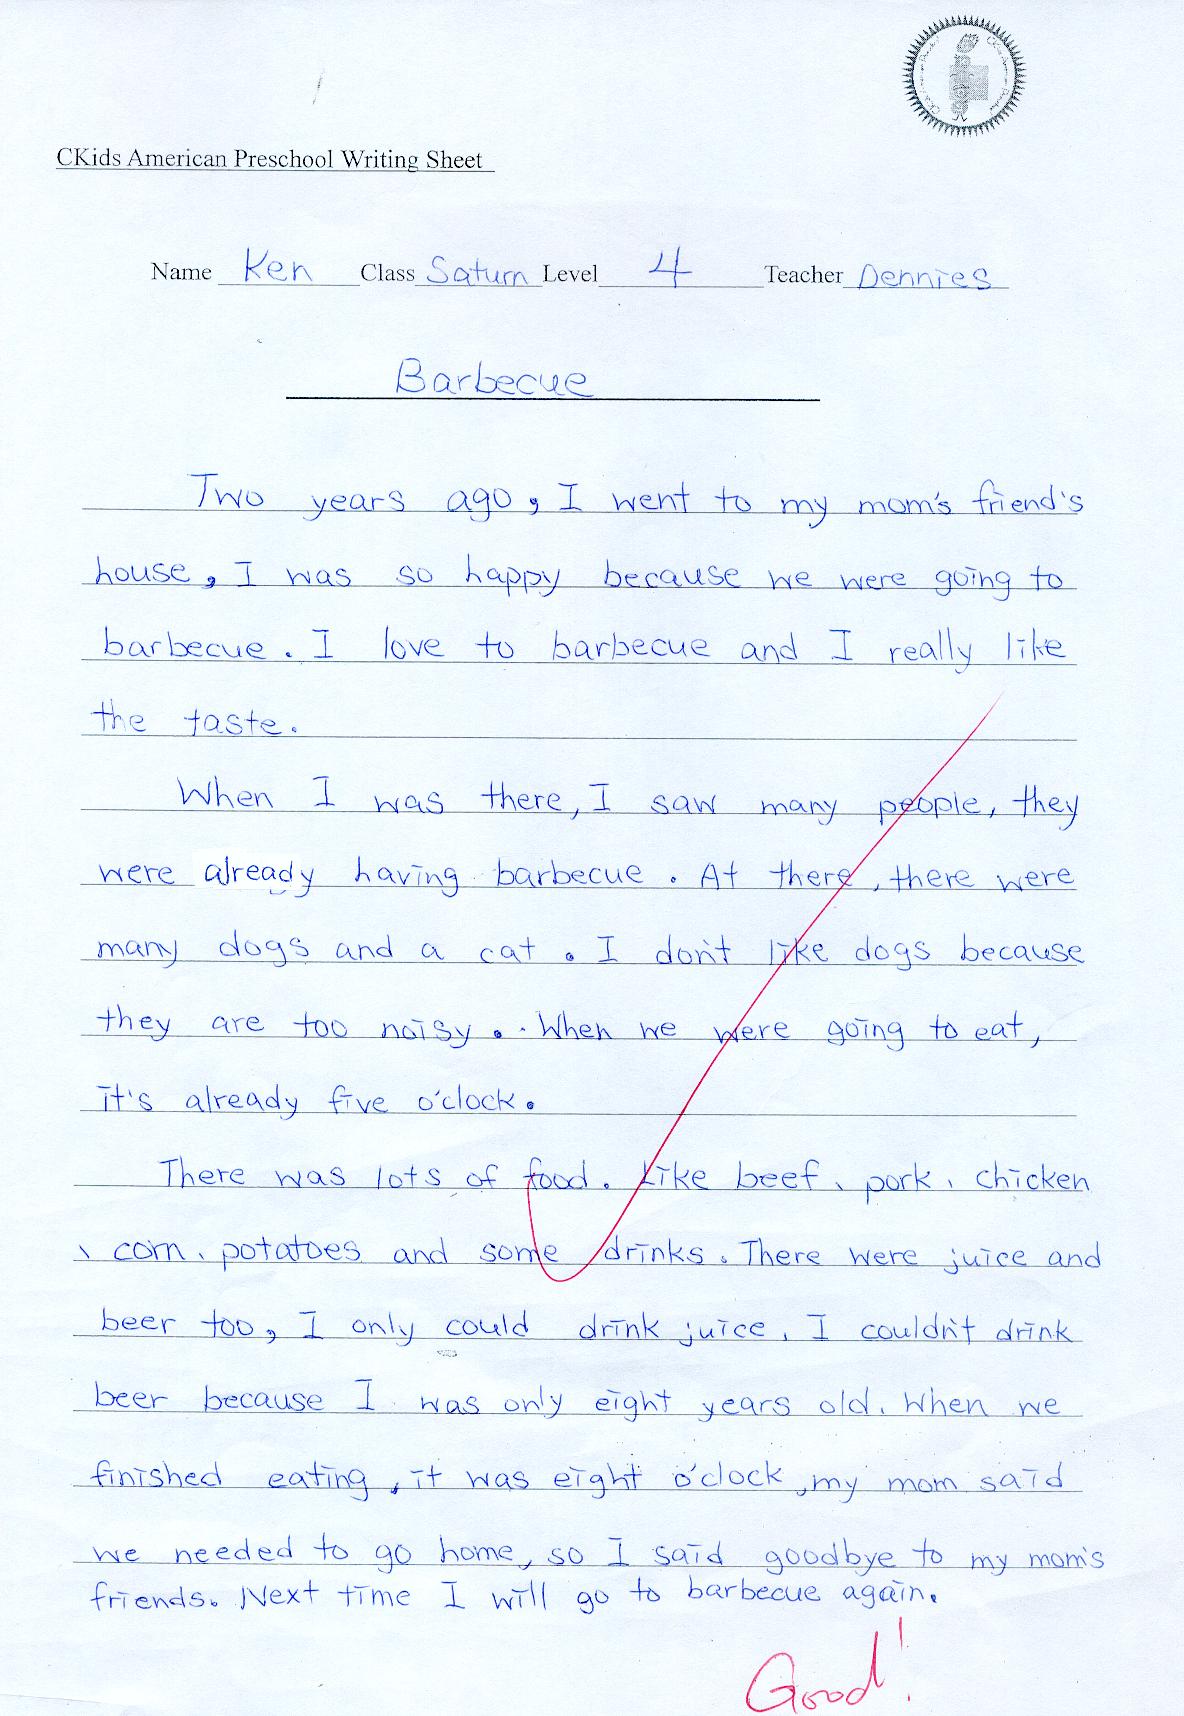 CKids American Preschool Writing Sheet
Name Ken Class Saturn Level 4 Teacher Dennies
Barbecue
Two years ago, I went to my mom's friend's
house, I was so happy because we were going to
barbecue. I love to barbecue and I really like
the taste.
When I was there, I saw many people, they
were already having barbecue. At there, there were
many dogs and a cat. I don't like dogs because
they are too noisy. When we were going to eat,
it's already five o'clock.
There was lots of food. Like beef、pork、chicken
、corn、potatoes and some drinks. There were juice and
beer too, I only could drink juice. I couldn't drink
beer because I was only eight years old. When we
finished eating, it was eight o'clock, my mom said
we needed to go home, so I said goodbye to my mom's
friends. Next time I will go to barbecue again.
Good!